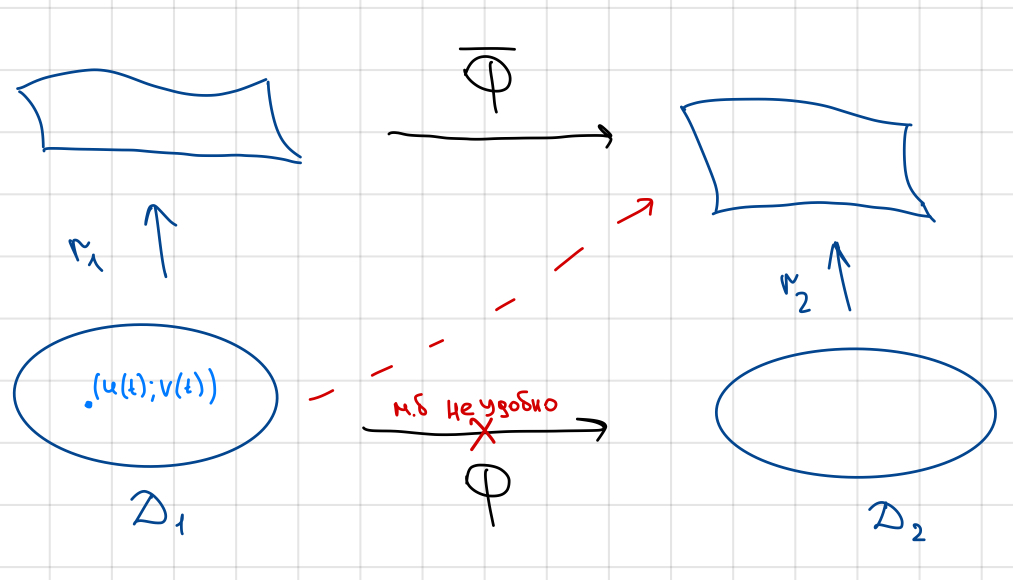 Φ̅
r₁
r₂
(u(t);v(t))
м.б не удобно
Φ
D₁
D₂